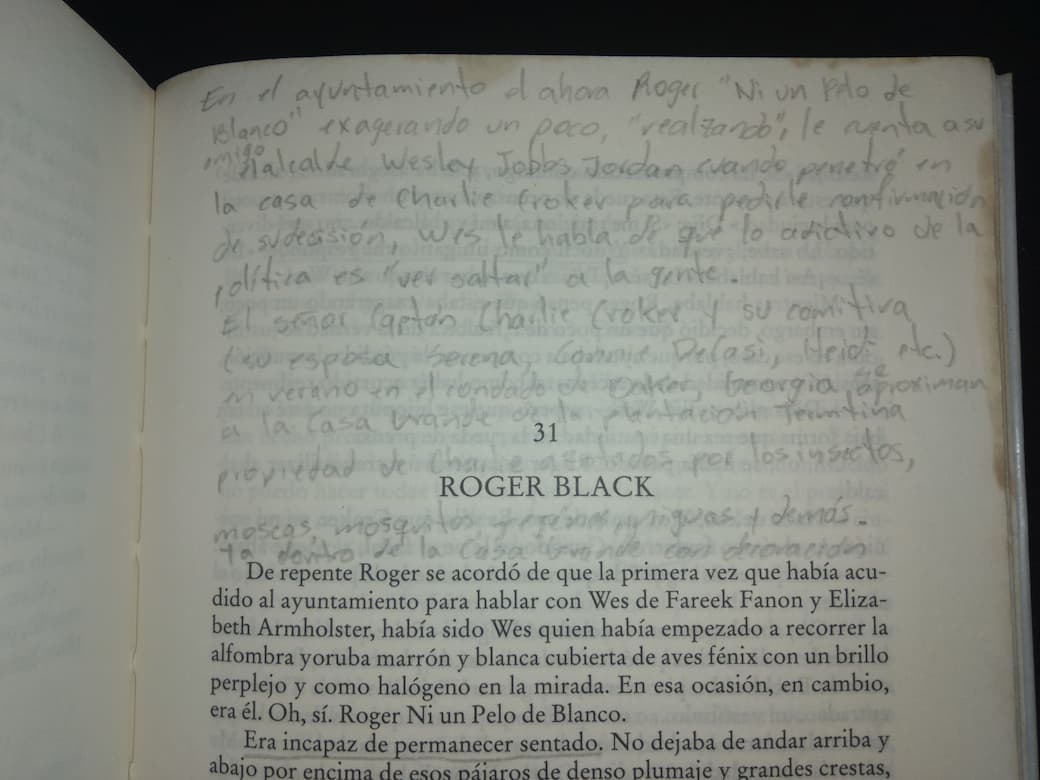 En el ayuntamiento el ahora Roger "Ni un Pelo de
Blanco" exagerando un poco, "realzando", le cuenta a su
amigo alcalde Wesley Jobbs Jordan cuando penetró en
la casa de Charlie Croker para pedirle confirmación
de su decisión, Wes le habla de que lo adictivo de la
política es "ver saltar" a la gente.
El señor Captán Charlie Croker y su comitiva
(su esposa Serena, Connie Delasi, Heidi etc.)
en verano en el condado de Baker, Georgia se aproximan
a la Casa Grande de la plantación Termtina
31
propiedad de Charlie azotados por los insectos,
ROGER BLACK
moscas, mosquitos, niguas y demás.
Ya dentro de la Casa Grande con decoración
De repente Roger se acordó de que la primera vez que había acu-
dido al ayuntamiento para hablar con Wes de Fareek Fanon y Eliza-
beth Armholster, había sido Wes quien había empezado a recorrer la
alfombra yoruba marrón y blanca cubierta de aves fénix con un brillo
perplejo y como halógeno en la mirada. En esa ocasión, en cambio,
era él. Oh, sí. Roger Ni un Pelo de Blanco.
Era incapaz de permanecer sentado. No dejaba de andar arriba y
abajo por encima de esos pájaros de denso plumaje y grandes crestas,